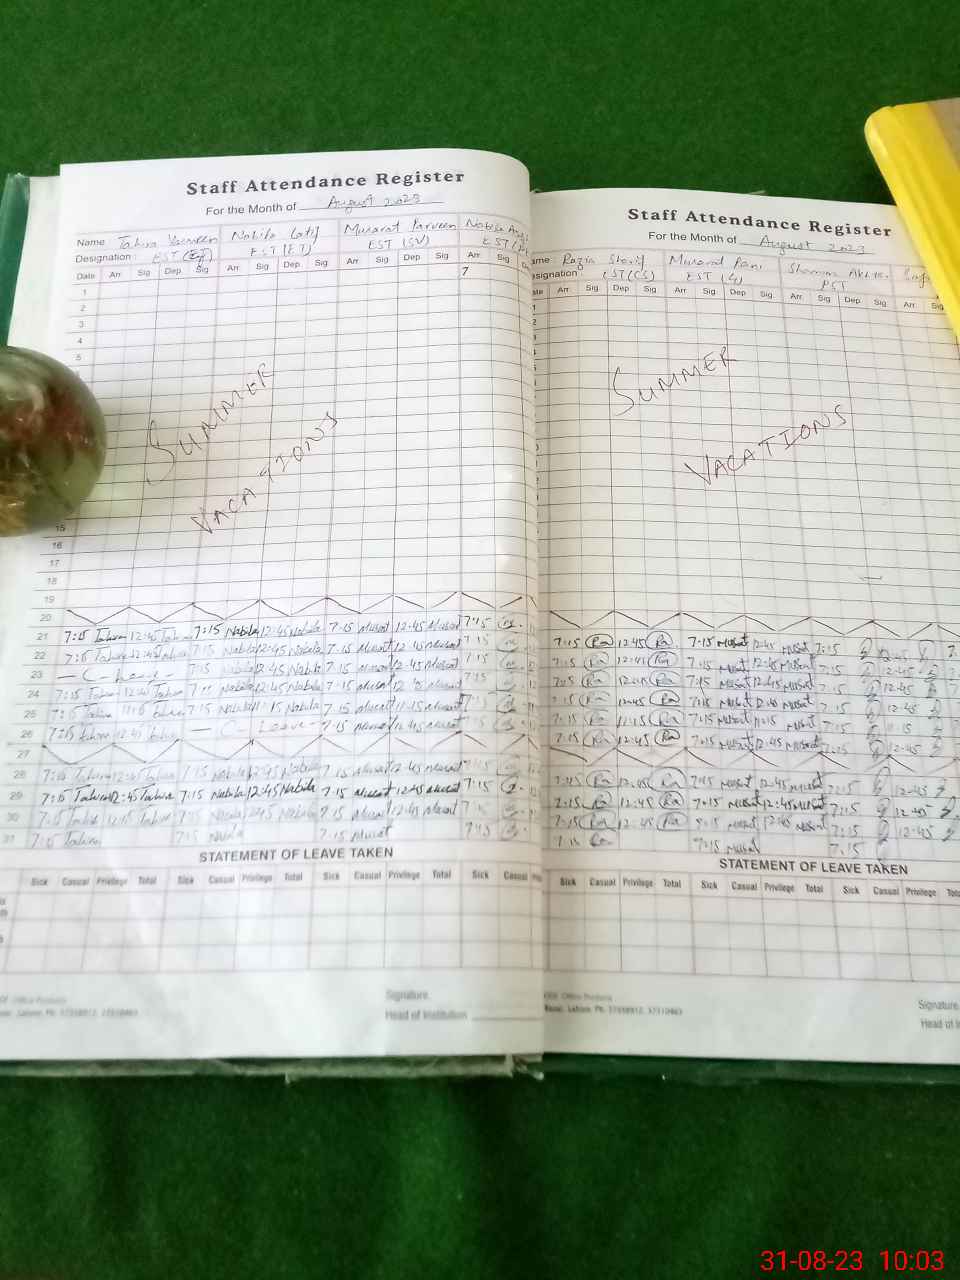 Staff Attendance Register
For the Month of August 2023
Name Tahira Yasmeen Nabila Latif Musarat Parveen Nabila
Designation : EST (ET) EST (ET) EST (SV) EST
Date Arr Sig Dep. Sig Arr. Sig Dep. Sig Arr. Sig. Dep. Sig. Arr. Sig.
1 7
2
3
4
5
SUMMER
VACATIONS
15
16
17
18
19
20
21 7:15 Tahira 12:45 Tahira 7:15 Nabila 12:45 Nabila 7:15 Musrat 12:45 Musrat 7:15
22 7:15 Tahira 12:45 Tahira 7:15 Nabila 12:45 Nabila 7:15 Musrat 12:45 Musrat 7:15
23 — C- Leave - 7:15 Nabila 12:45 Nabila 7:15 Musrat 12:45 Musrat 7:15
24 7:15 Tahira 12:45 Tahira 7:15 Nabila 12:45 Nabila 7:15 Musrat 12:45 Musrat 7:15
25 7:15 Tahira 11:15 Tahira 7:15 Nabila 11:15 Nabila 7:15 Musrat 11:15 Musrat 7:15
26 7:15 Tahira 12:45 Tahira — C- Leave - 7:15 Musrat 12:45 Musrat 7:15
27
28 7:15 Tahira 12:45 Tahira 7:15 Nabila 12:45 Nabila 7:15 Musrat 12:45 Musrat 7:15
29 7:15 Tahira 12:45 Tahira 7:15 Nabila 12:45 Nabila 7:15 Musrat 12:45 Musrat 7:15
30 7:15 Tahira 12:45 Tahira 7:15 Nabila 12:45 Nabila 7:15 Musrat 12:45 Musrat 7:15
31 7:15 Tahira 7:15 Nabila 7:15 Musrat 7:15
STATEMENT OF LEAVE TAKEN
Sick Casual Privilege Total Sick Casual Privilege Total Sick Casual Privilege Total Sick Casual
Signature
Head of Institution
Staff Attendance Register
For the Month of August 2023
ame : Razia Sharif Musarat Rani Shamim Akhtar
esignation : EST (CS) EST PST
Arr. Sig. Dep Sig. Arr. Sig. Dep. Sig. Arr. Sig. Dep. Sig. Arr. Sig
SUMMER
VACATIONS
7:15 Ra 12:45 Ra 7:15 Musrat 12:45 Musrat 7:15
7:15 Ra 12:45 Ra 7:15 Musrat 12:45 Musrat 7:15 12:45
7:15 Ra 12:45 Ra 7:15 Musrat 12:45 Musrat 7:15 12:45
7:15 Ra 12:45 Ra 7:15 Musrat 12:45 Musrat 7:15 12:45
7:15 Ra 11:15 Ra 7:15 Musrat 11:15 Musrat 7:15
7:15 Ra 12:45 Ra 7:15 Musrat 12:45 Musrat 7:15 12:45
7:15 Ra 12:45 Ra 7:15 Musrat 12:45 Musrat 7:15 12:45
7:15 Ra 12:45 Ra 7:15 Musrat 12:45 Musrat 7:15 12:45
7:15 Ra 12:45 Ra 7:15 Musrat 12:45 Musrat 7:15 12:45
7:15 Ra 7:15 Musrat 7:15
STATEMENT OF LEAVE TAKEN
Sick Casual Privilege Total Sick Casual Privilege Total Sick Casual Privilege
Signature
Head of
31-08-23 10:03